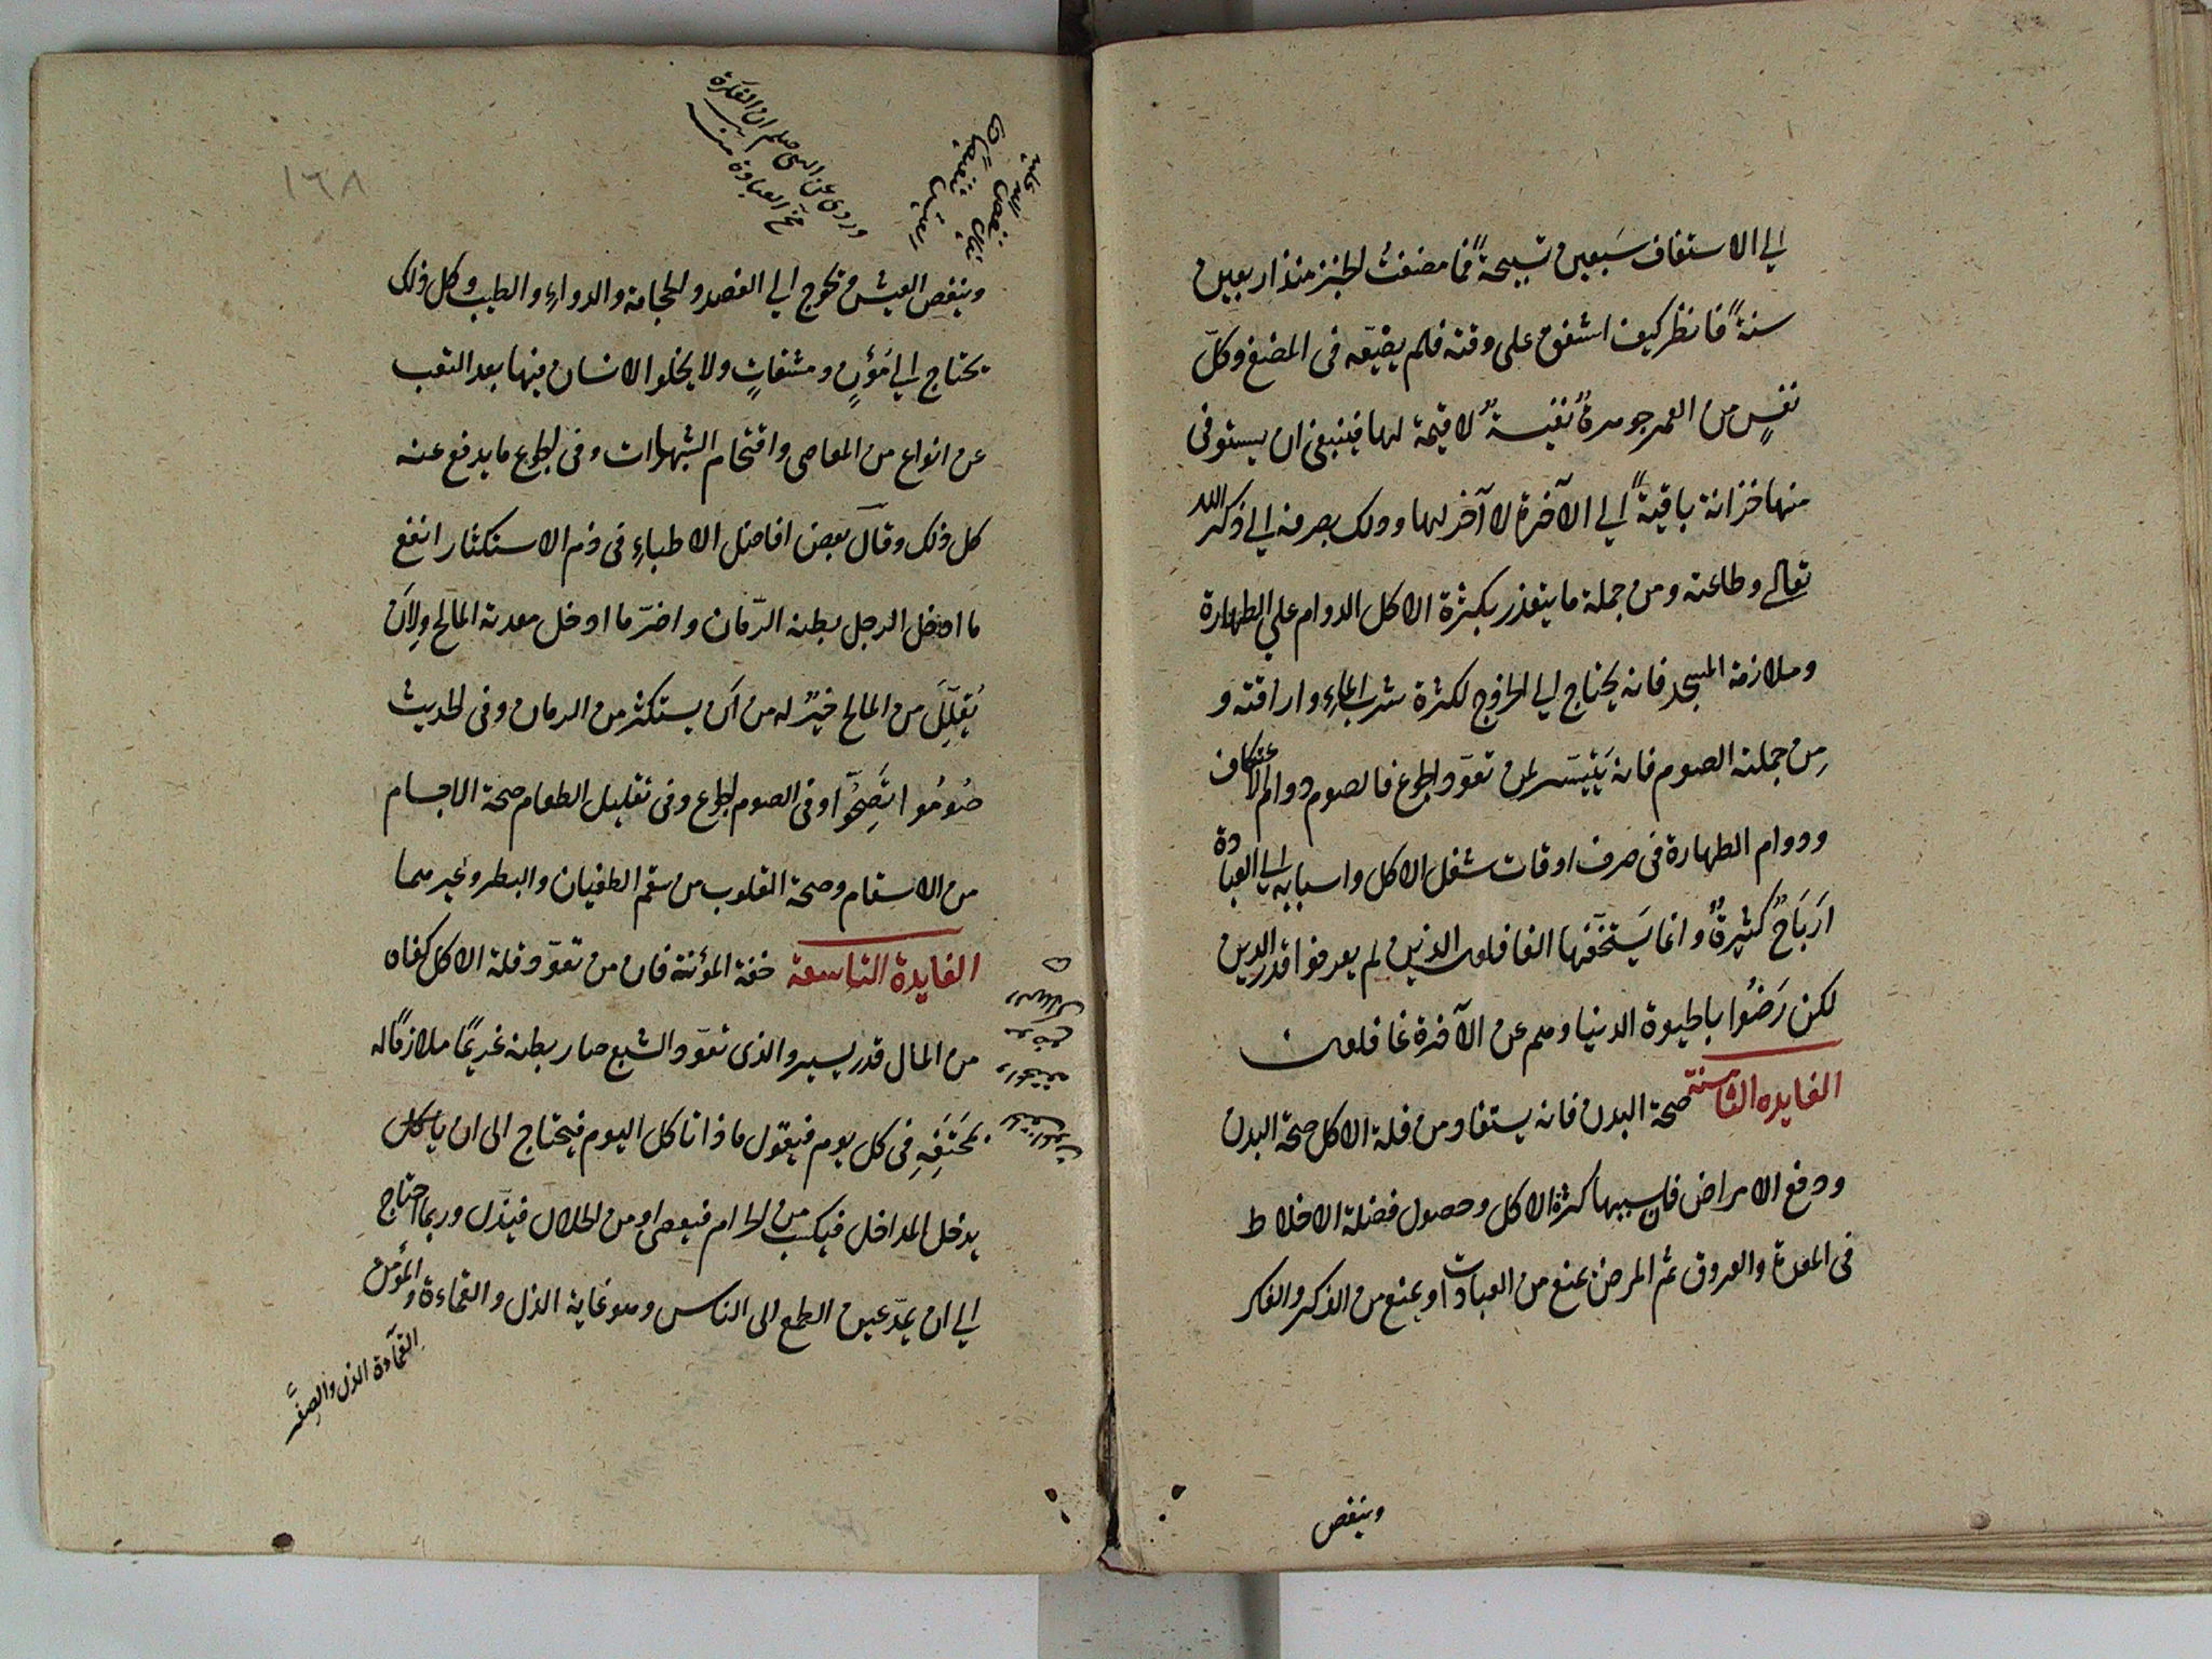 الي الاستفاف سَبعين تسبيحةً فما مضغتُ الخبز منذ اربعين
سنةً فانظر كيف اشفق على وقته فلم يضيّعه فى المضغ وكلّ
نفسٍ من العمر جوهرةٌ نفيسةٌ لا قيمة لها فينبغى ان يستوفى
منها خزانة باقيةً الي الآخرة لا آخر لها وذلك بصرفه الي ذكر الله
تعالى وطاعته ومن جملة ما يتعذر بكثرة الاكل الدوام علي الطهارة
وملازمة المسجد فانه يحتاج الي الخروج لكثرة شرب الماء واراقته و
مِن جملته الصوم فانه يَتيسّر لمن تعوّد الجوع فالصوم ودوام الاعتكاف
ودوام الطهارة فى صرف اوقات شغل الاكل واسبابه الي العبادة
اَربَاحٌ كثيرةٌ وانما يَستحقرها الغافلون الذين لم يعرفوا قدر الدين
لكن رَضُوا بالحيوة الدنيا وهم عن الآخرة غافلون
الفايده الثامنة صحة البدن فانه يستفاد من قلة الاكل صحة البدن
ودفع الامراض فان سببها كثرة الاكل وحصول فضلة الاخلاط
فى المعدة والعروق ثم المرض يمنع من العبادات او يمنع من الذكر والفكر
وينغص
١٦٨
وروى عن النبى صلعم ان الفكرة
مخّ العبادة منه
وينغص العيش ويحوج الي الفصد والحجامة والدواء والطبيب وكل ذلك
يحتاج الي مُؤَنٍ ومشقاتٍ ولا يخلو الانسان فيها بعد التعب
عن انواع من المعاصى واقتحام الشهوات وفى الجوع ما يدفع عنه
كل ذلك وقال بعض افاضل الاطباء فى ذم الاستكثار انفع
ما ادخل الرجل بطنه الرّمان واضرّ ما ادخل معدته المالح ولاَن
يُقلِّلَ من المالح خيرٌ له من اَن يستكثر من الرمان وفى الحديث
صُومُوا تَصِحُّوا وفى الصوم الجوع وفى تقليل الطعام صحة الاجسام
من الاسقام وصحة القلوب من سقم الطغيان والبطر وغيرهما
الفايدة التاسعة خفة المؤنة فان من تعوّد قلة الاكل كفاه
من المال قدر يسير والذى تعوّد الشبع صار بطنه غريمًا ملازمًا له
بمُخَنِّقِهِ فى كل يوم فيقول ماذا تاكل اليوم فيحتاج الى ان ياكل
يدخل المداخل فيكسب من الحرام فيعصى او من الحلال فيذل وربما احتاج
الي ان يمدّ عين الطمع الى الناس وهو غاية الذل والقماءة والمؤمن
القماءة الذل والصغر